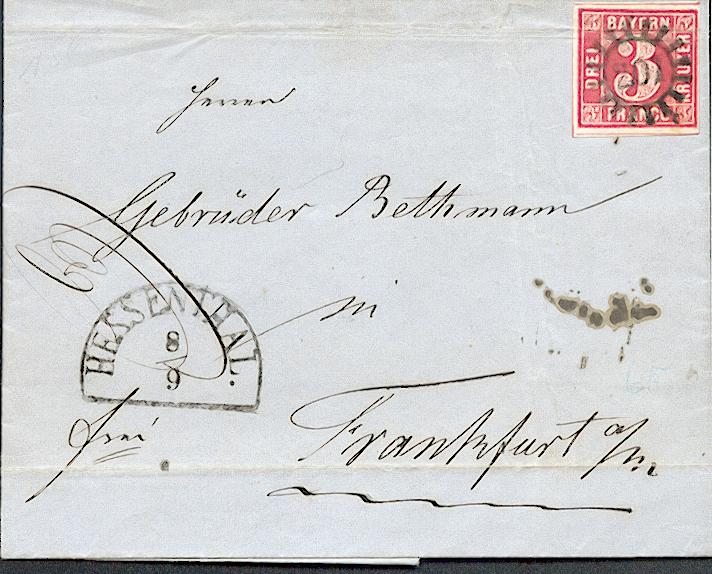 BAYERN
DREI 3 KREUZER
FRANCO
Herren
Gebrüder Bethmann
in
HESSENTHAL.
8
9
frei
Frankfurt a/m